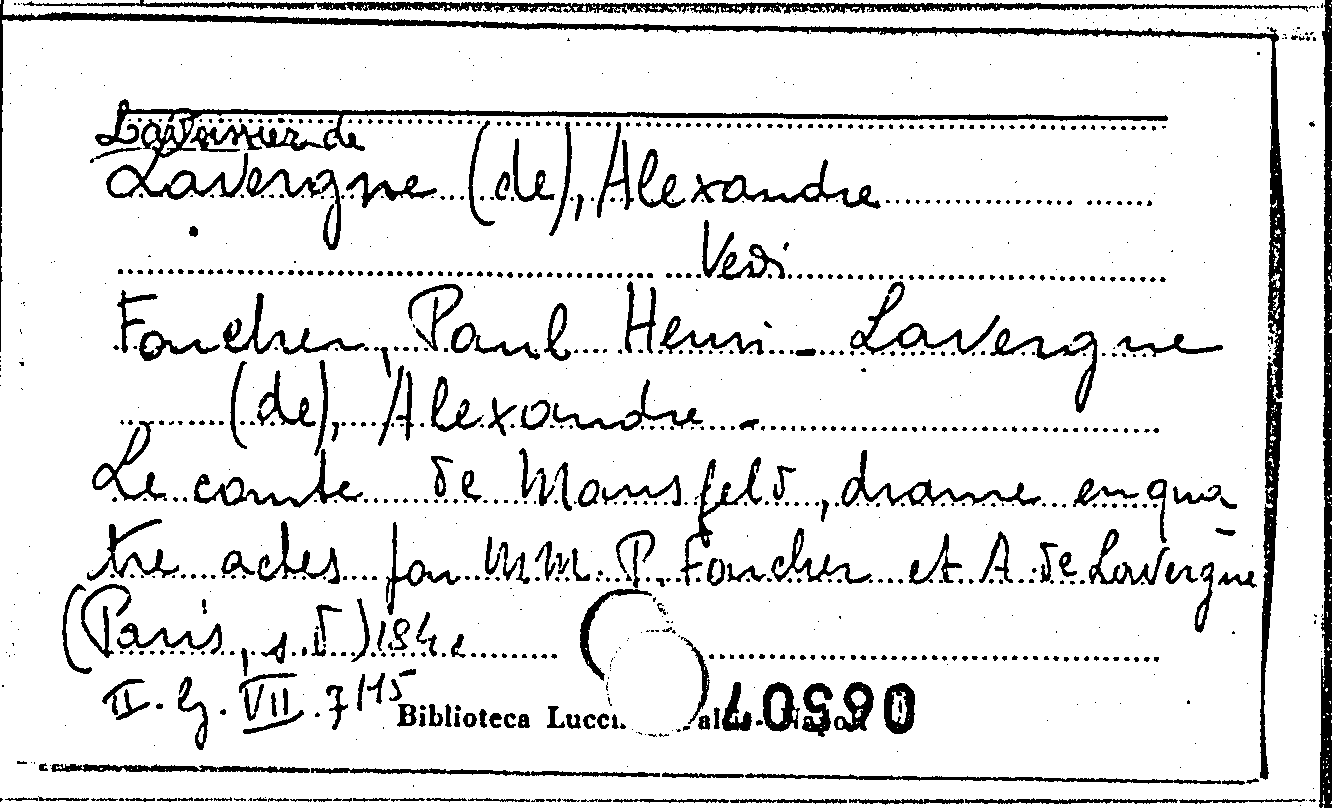 Lavoissier de
Lavergne (de), Alexandre
Vedi
Foucher, Paul Henri - Lavergne
(de), Alexandre -
Le comte de Mansfeld, drame en qua
tre actes par MM. P. Foucher et A. de Lavergne
(Paris, s.d) 184
II. G. VII. 7/15
Biblioteca Lucchesi Palli - Napoli